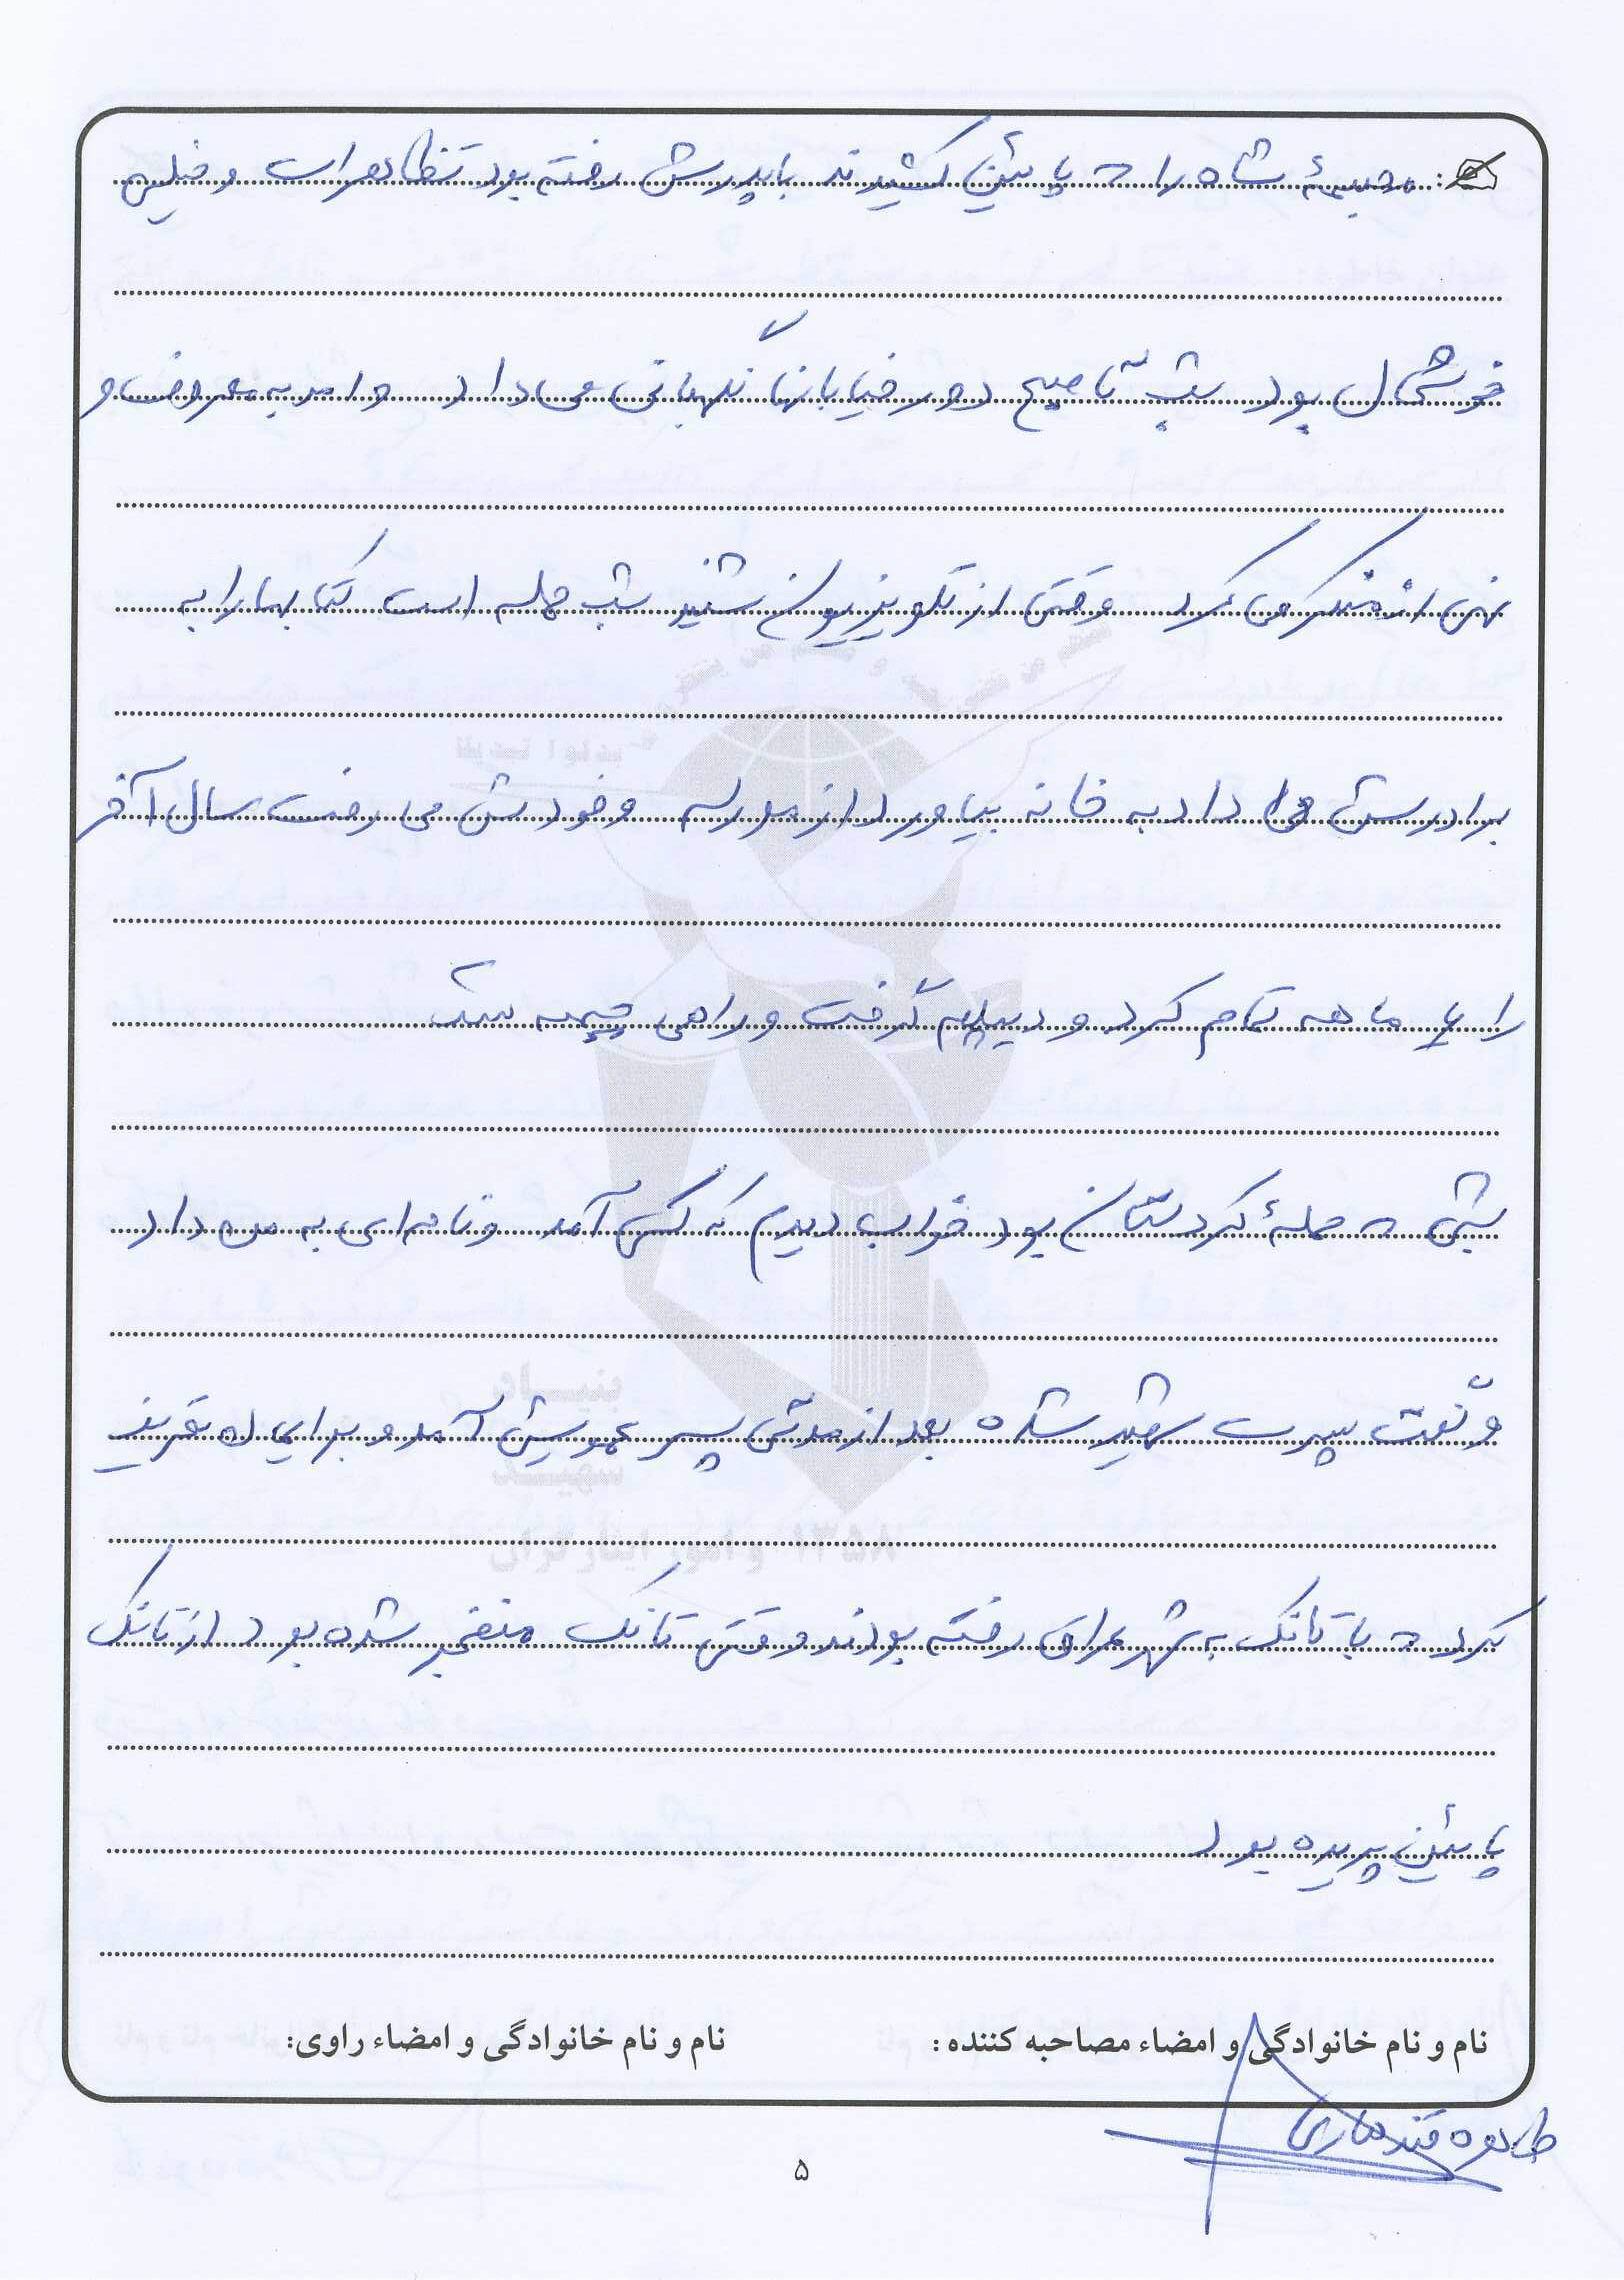 مجسمهٔ شاه را که پائین کشیدند با پدرش رفته بود تظاهرات و خیلی
خوشحال بود شب تا صبح در خیابانها نگهبانی می‌داد و امر به معروف و
نهی از منکر می کرد وقتی از تلویزیون شنید شب حمله است کتابها را به
برادرش می داد به خانه بیاورد از مدرسه و خودش می رفت سال آخر
را ۴ ماهه تمام کرد و دیپلم گرفت و راهی جبهه شد
شبی که حملهٔ کردستان بود خواب دیدم که کسی آمد و نامه‌ای به من داد
و گفت پسرت شهید شده بعد از مدتی پسر عمویش آمد و برایمان تعریف
کرد که با تانک به شهر عراق رفته بودند وقتی تانک منفجر شده بود از تانک
پائین پریده بود
نام و نام خانوادگی و امضاء مصاحبه کننده: نام و نام خانوادگی و امضاء راوی:
طاهره قندهاری
۵